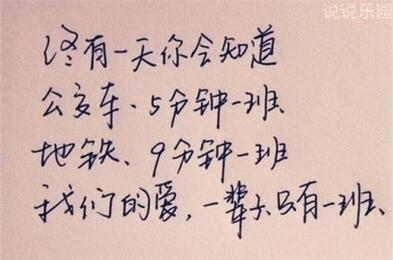 说说乐园
终有一天你会知道
公交车、5分钟一班、
地铁、9分钟一班
我们的爱,一辈子只有一班、